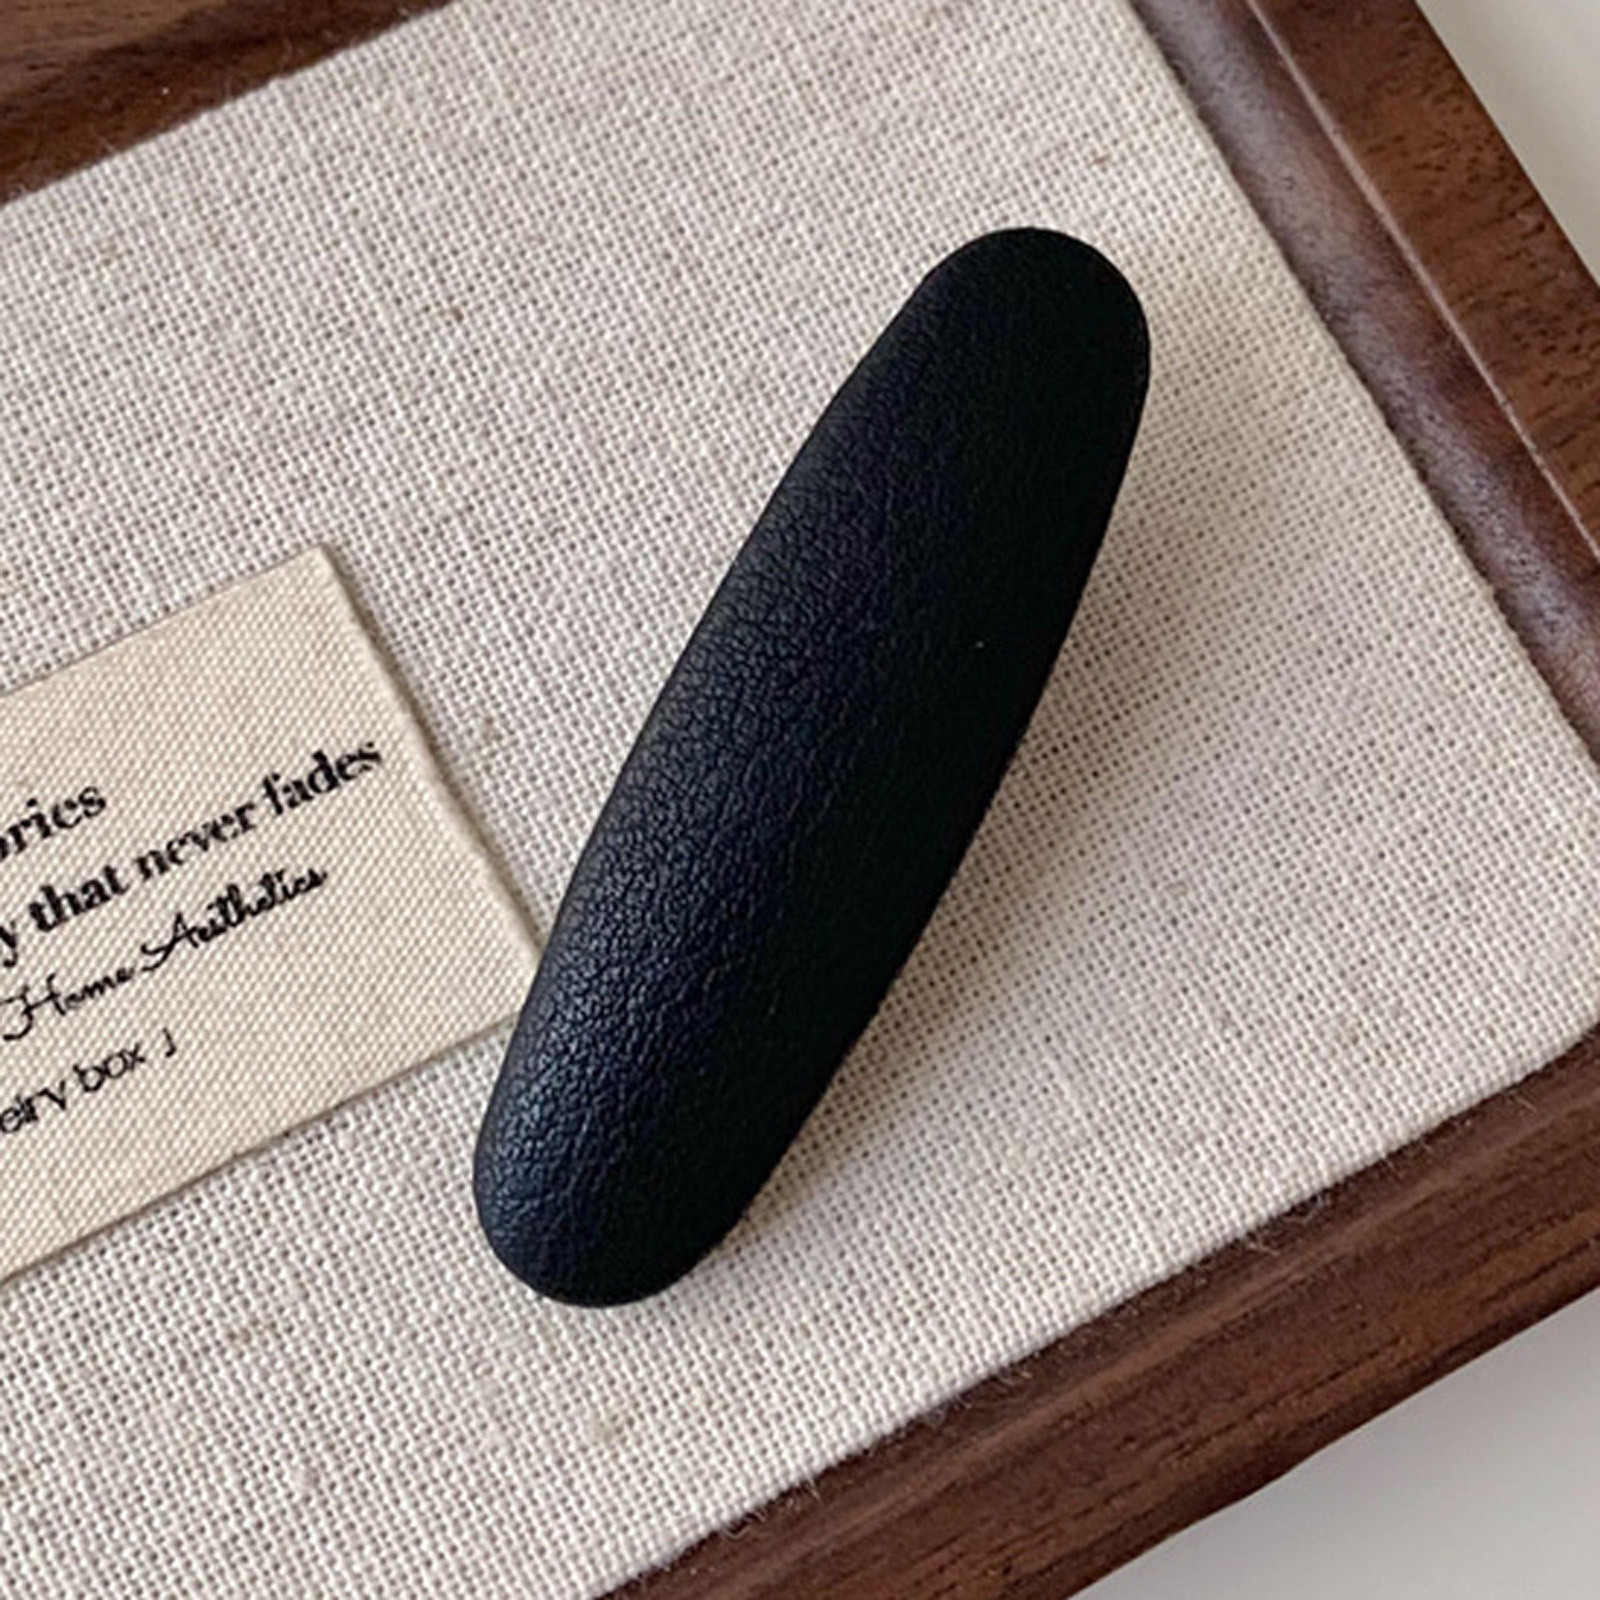 ories
y that never fades
Home Aesthetics
elry box 」